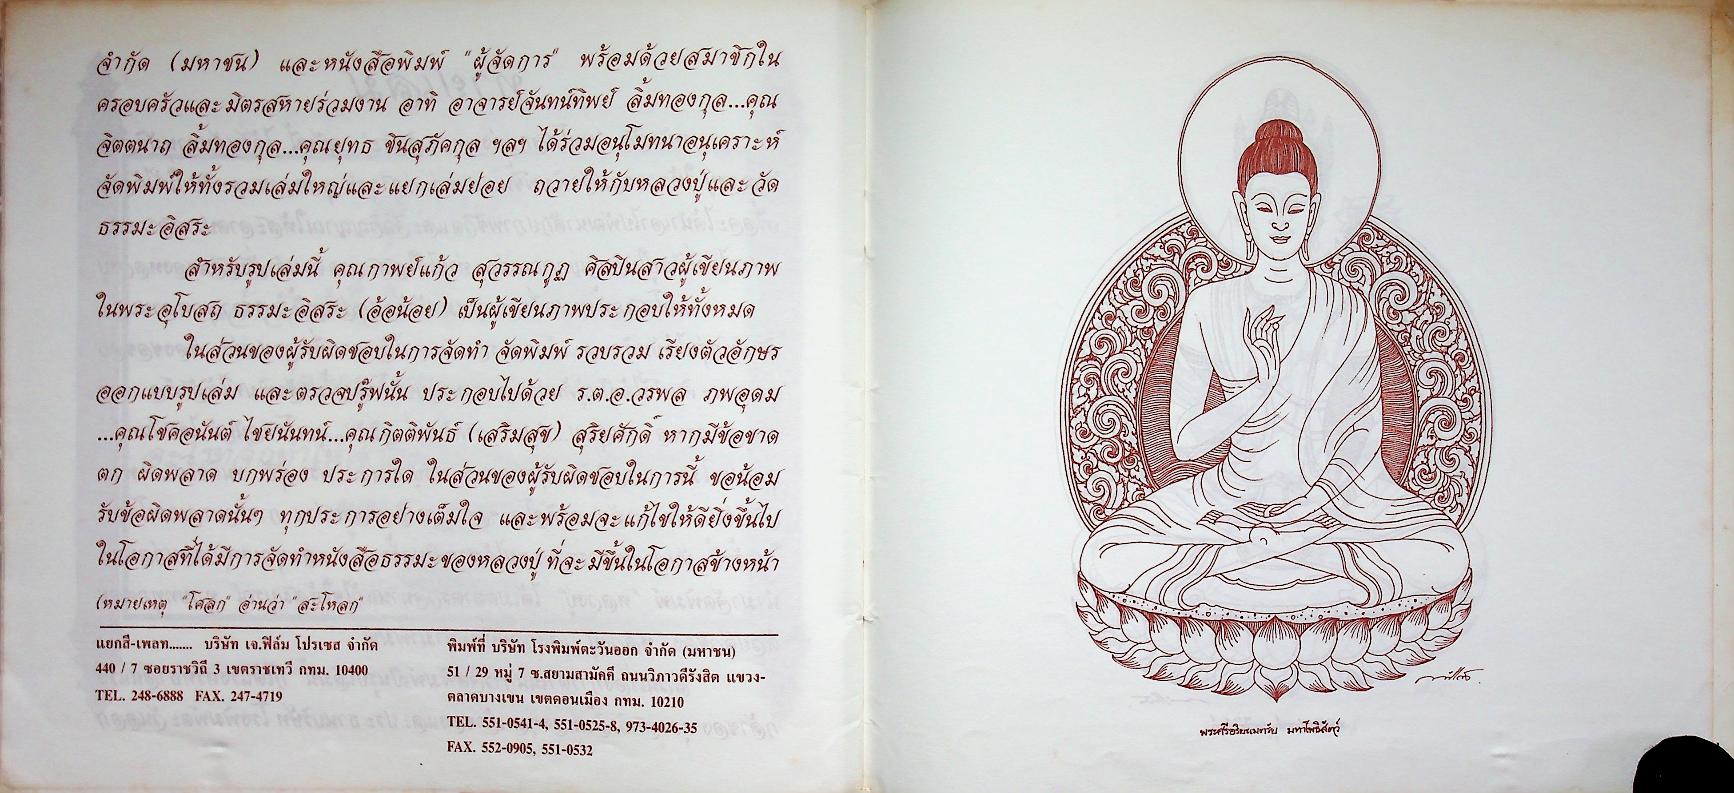 จำกัด (มหาชน) และหนังสือพิมพ์ "ผู้จัดการ" พร้อมด้วยสมาชิกใน
ครอบครัวและมิตรสหายร่วมงาน อาทิ อาจารย์จันทน์ทิพย์ ลิ้มทองกุล...คุณ
จิตตนาถ ลิ้มทองกุล...คุณยุทธ ชินสุภัคกุล ฯลฯ ได้ร่วมอนุโมทนาอนุเคราะห์
จัดพิมพ์ให้ทั้งรวมเล่มใหญ่และแยกเล่มย่อย ถวายให้กับหลวงปู่และวัด
ธรรมะอิสระ
สำหรับรูปเล่มนี้ คุณกาพย์แก้ว สุวรรณกูฏ ศิลปินสาวผู้เขียนภาพ
ในพระอุโบสถ ธรรมะอิสระ (อ้อน้อย) เป็นผู้เขียนภาพประกอบให้ทั้งหมด
ในส่วนของผู้รับผิดชอบในการจัดทำ จัดพิมพ์ รวบรวม เรียงตัวอักษร
ออกแบบรูปเล่ม และตรวจปรู๊ฟนั้น ประกอบไปด้วย ร.ต.อ.วรพล ภพอุดม
...คุณโชคอนันต์ ไชยนันทน์...คุณกิตติพันธ์ (เสริมสุข) สุริยศักดิ์ หากมีข้อขาด
ตก ผิดพลาด บกพร่อง ประการใด ในส่วนของผู้รับผิดชอบในการนี้ ขอน้อม
รับข้อผิดพลาดนั้นๆ ทุกประการอย่างเต็มใจ และพร้อมจะแก้ไขให้ดียิ่งขึ้นไป
ในโอกาสที่ได้มีการจัดทำหนังสือธรรมะของหลวงปู่ ที่จะมีขึ้นในโอกาสข้างหน้า
(หมายเหตุ "โศลก" อ่านว่า "สะโหลก"
แยกสี-เพลท....... บริษัท เจ.ฟิล์ม โปรเซส จำกัด
440 / 7 ซอยราชวิถี 3 เขตราชเทวี กทม. 10400
TEL. 248-6888 FAX. 247-4719
พิมพ์ที่ บริษัท โรงพิมพ์ตะวันออก จำกัด (มหาชน)
51 / 29 หมู่ 7 ซ.สยามสามัคคี ถนนวิภาวดีรังสิต แขวง-
ตลาดบางเขน เขตดอนเมือง กทม. 10210
TEL. 551-0541-4, 551-0525-8, 973-4026-35
FAX. 552-0905, 551-0532
พระศรีอริยเมตรัย มหาโพธิสัตว์